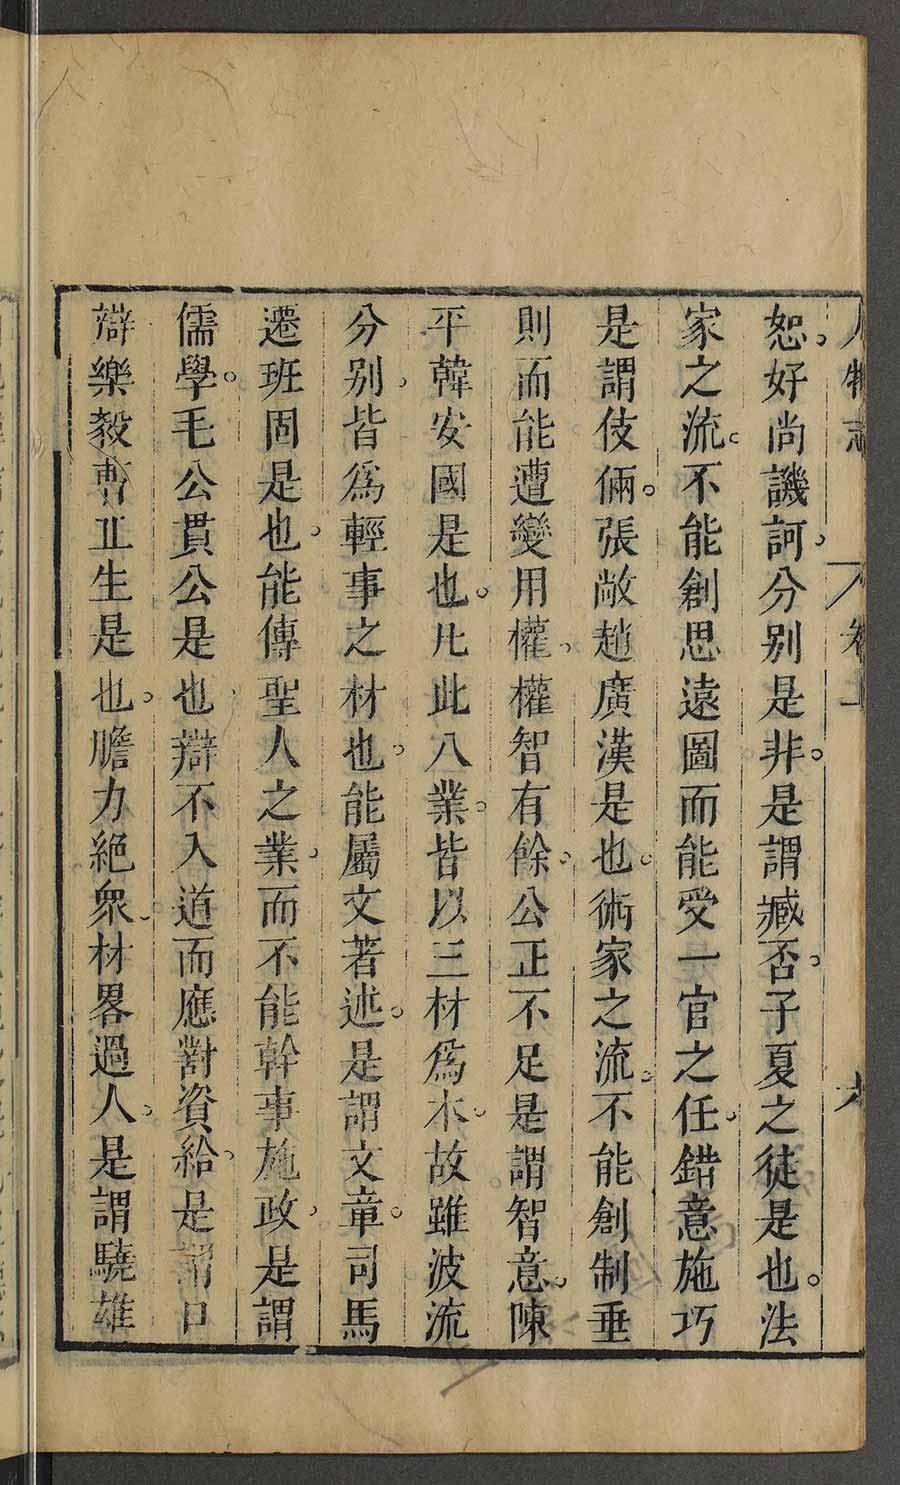 人物志 卷上
恕。好尚譏訶。分別是非。是謂臧否。子夏之徒是也。法
家之流。不能創思遠圖而能受一官之任。錯意施巧
是謂伎倆。張敞趙廣漢是也。術家之流。不能創制垂
則而能遭變用權。權智有餘。公正不足是謂智意。陳
平韓安國是也。凡此八業。皆以三材爲本。故雖波流
分別。皆爲輕事之材也。能屬文著述。是謂文章。司馬
遷班固是也。能傳聖人之業。而不能幹事施政。是謂
儒學。毛公貫公是也。辯不入道而應對資給。是謂口
辯樂毅曹丘生是也。膽力絕衆。材畧過人。是謂驍雄